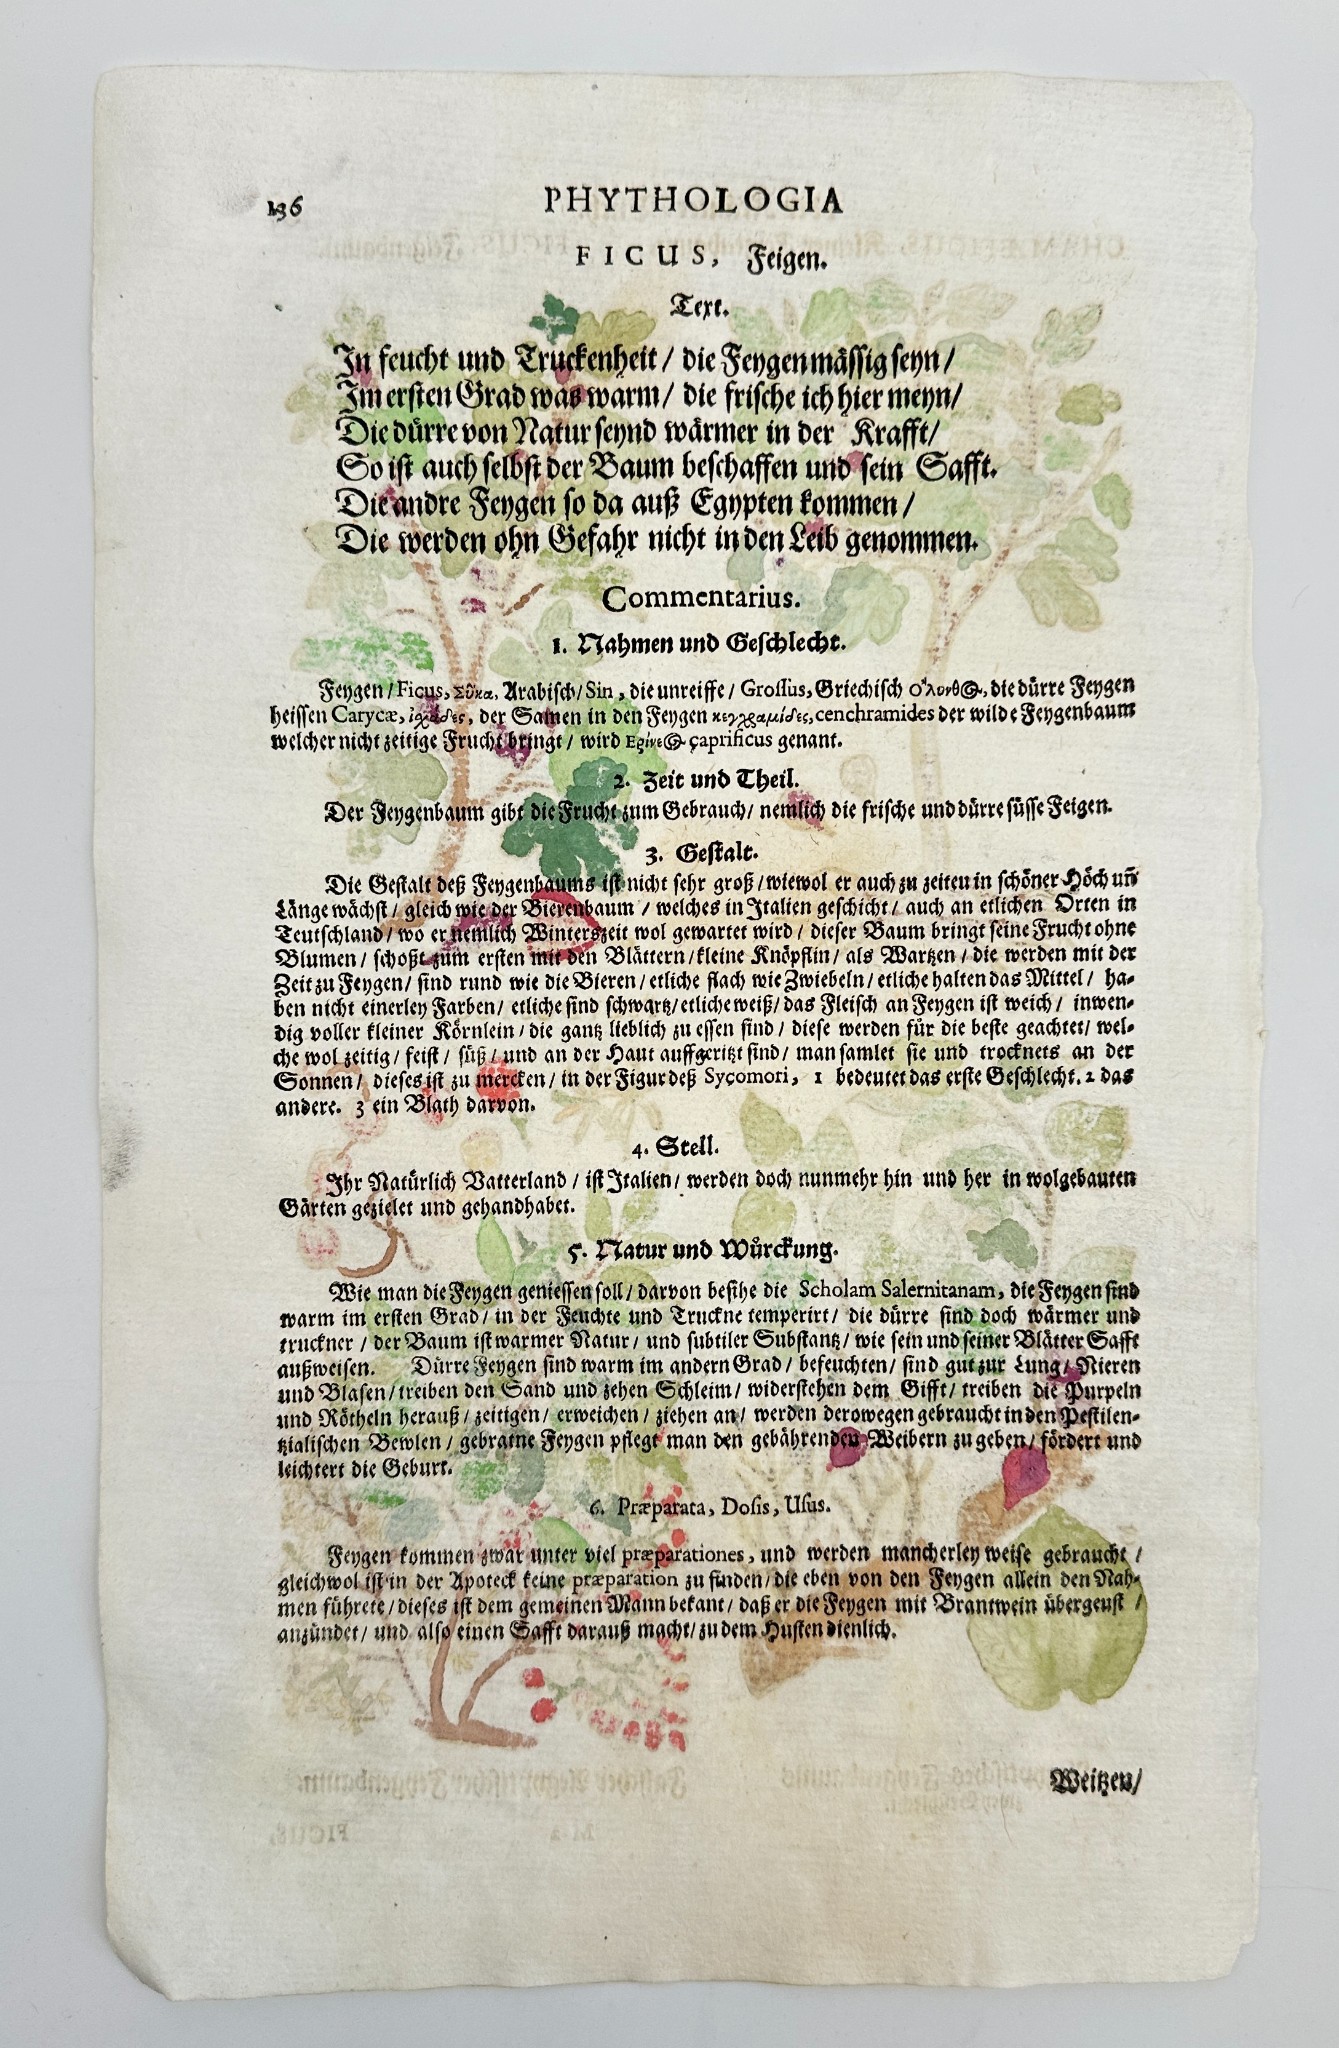 136
PHYTHOLOGIA
FICUS, Feigen.
Text.
In feucht und Truckenheit / die Feygen mässig seyn /
Im ersten Grad was warm / die frische ich hier meyn /
Die dürre von Natur seynd wärmer in der Krafft /
So ist auch selbst der Baum beschaffen und sein Safft.
Die andre Feygen so da auß Egypten kommen /
Die werden ohn Gefahr nicht in den Leib genommen.
Commentarius.
1. Nahmen und Geschlecht.
Feygen / Ficus, Σῦκα, Arabisch / Sin, die unreiffe / Grossus, Griechisch Ὄλυνθος, die dürre Feygen
heissen Carycæ, ἰχάδες, der Samen in den Feygen κεγχραμίδες, cenchramides der wilde Feygenbaum
welcher nicht zeitige Frucht bringt / wird Ερίνεος çaprificus genant.
2. Zeit und Theil.
Der Feygenbaum gibt die Frucht zum Gebrauch / nemlich die frische und dürre süsse Feigen.
3. Gestalt.
Die Gestalt deß Feygenbaums ist nicht sehr groß / wiewol er auch zu zeiten in schöner Höch uñ
Länge wächst / gleich wie der Bierenbaum / welches in Italien geschicht / auch an etlichen Orten in
Teutschland / wo er nemlich Winterszeit wol gewartet wird / dieser Baum bringt seine Frucht ohne
Blumen / schoßt zum ersten mit den Blättern / kleine Knöpflin / als Wartzen / die werden mit der
Zeit zu Feygen / sind rund wie die Bieren / etliche flach wie Zwiebeln / etliche halten das Mittel / ha-
ben nicht einerley Farben / etliche sind schwartz / etliche weiß / das Fleisch an Feygen ist weich / inwen-
dig voller kleiner Körnlein / die gantz lieblich zu essen sind / diese werden für die beste geachtet / wel-
che wol zeitig / feist / süß / und an der Haut auffgeritzt sind / man samlet sie und trocknets an der
Sonnen / dieses ist zu mercken / in der Figur deß Syçomori, 1 bedeutet das erste Geschlecht. 2 das
andere. 3 ein Blath darvon.
4. Stell.
Ihr Natürlich Vatterland / ist Italien / werden doch nunmehr hin und her in wolgebauten
Gärten gezielet und gehandhabet.
5. Natur und Würckung.
Wie man die Feygen geniessen soll / darvon besihe die Scholam Salernitanam, die Feygen sind
warm im ersten Grad / in der Feuchte und Truckne temperirt / die dürre sind doch wärmer und
truckner / der Baum ist warmer Natur / und subtiler Substantz / wie sein und seiner Blätter Safft
außweisen. Dürre Feygen sind warm im andern Grad / befeuchten / sind gut zur Lung / Nieren
und Blasen / treiben den Sand und zehen Schleim / widerstehen dem Gifft / treiben die Purpeln
und Rötheln herauß / zeitigen / erweichen / ziehen an / werden derowegen gebraucht in den Pestilen-
tzialischen Bewlen / gebratne Feygen pflegt man den gebährenden Weibern zu geben / fördert und
leichtert die Geburt.
6. Præparata, Dosis, Usus.
Feygen kommen zwar unter viel præparationes, und werden mancherley weise gebraucht /
gleichwol ist in der Apoteck keine præparation zu finden / die eben von den Feygen allein den Nah-
men führete / dieses ist dem gemeinen Mann bekant / daß er die Feygen mit Brantwein übergeust /
anzündet / und also einen Safft darauß macht / zu dem Husten dienlich.
Weitzen /